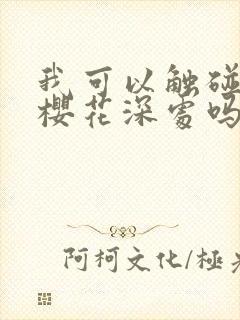 我可以触碰
樱花深处吗
阿柯文化/極光